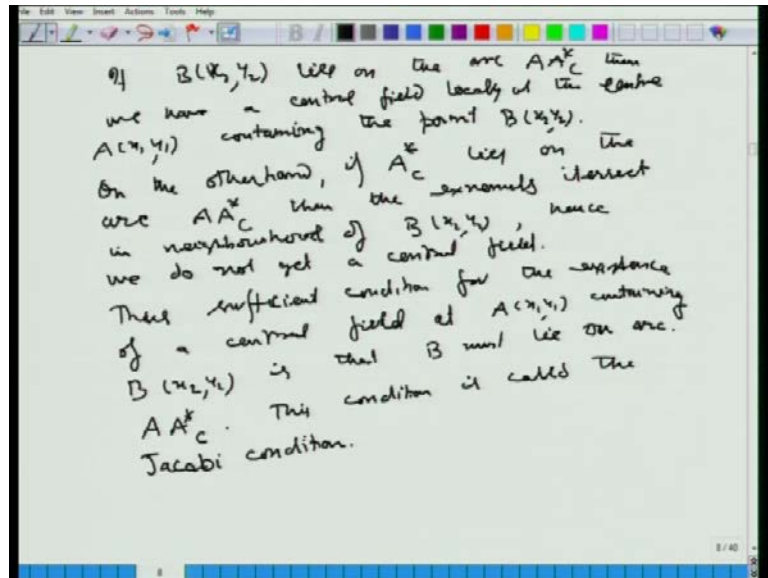 File Edit View Insert Actions Tools Help
If B(x2, y2) lies on the arc AA*c then
we have a central field locally at the centre
A(x1, y1) containing the point B(x2, y2).
On the otherhand, if A*c lies on the
arc AA*c then the extremals itersect
in neighbourhood of B(x2, y2), hence
we do not get a central field.
Thus sufficient condition for the existence
of a central field at A(x1, y1) containing
B(x2, y2) is that B must lie on arc.
AA*c. This condition is called the
Jacobi condition.
8/40
8